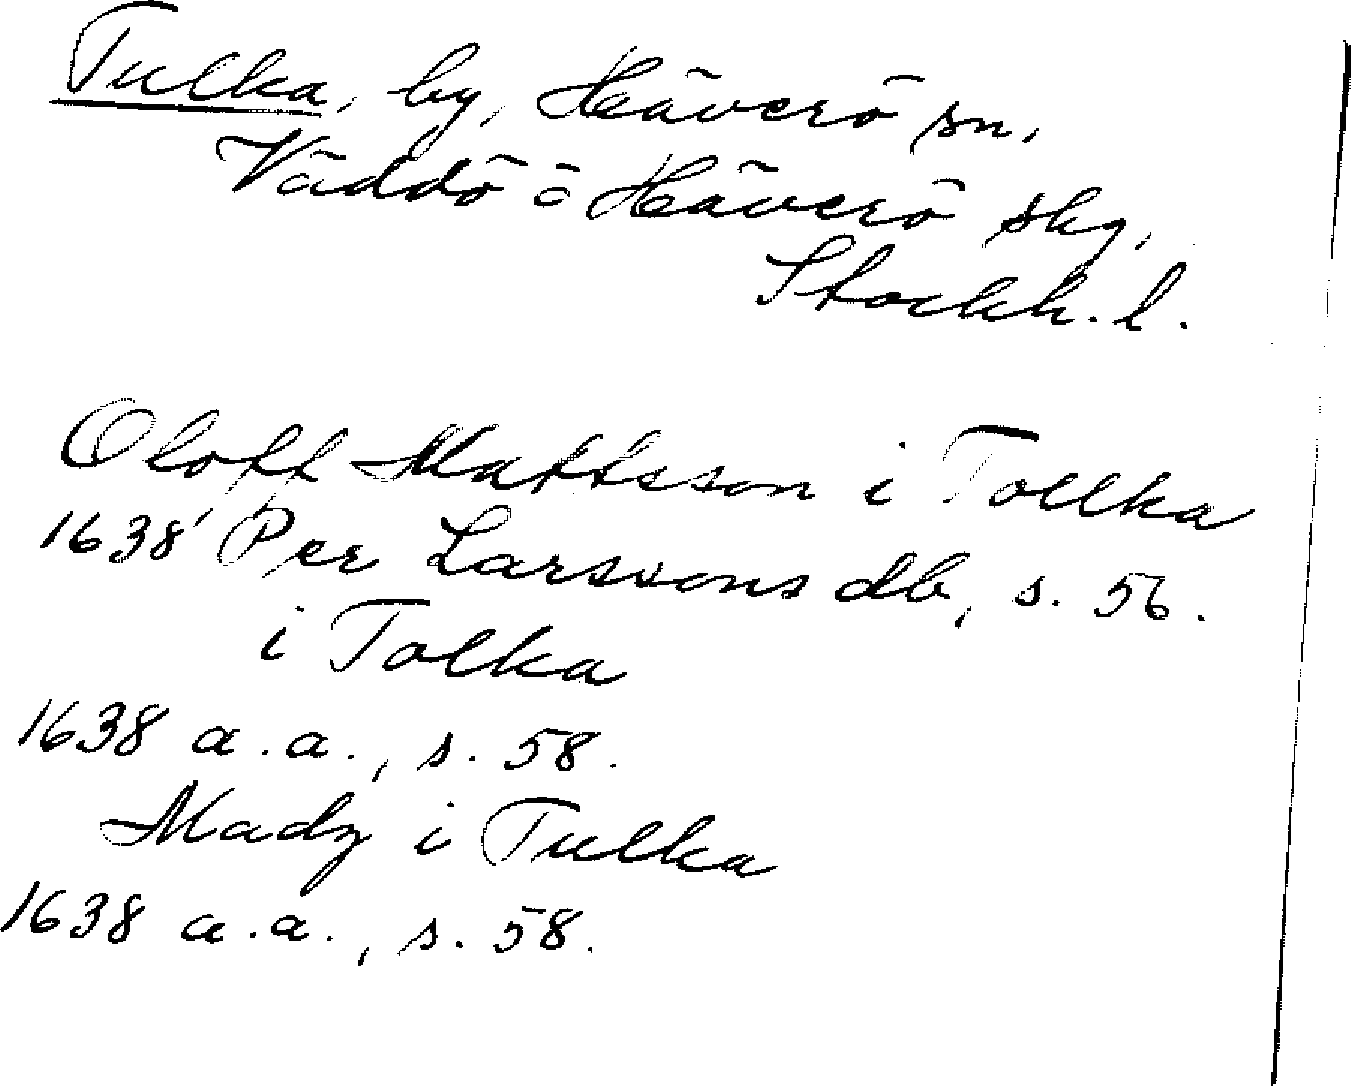 Tulka, by, Häverö sn,
Väddö ō Häverö skg,
Stockh. l.
Oloff Mattsson i Tollka
1638 Per Larssons db, s. 56.
i Tolka
1638 a.a., s. 58.
Madz i Tulka
1638 a.a., s. 58.